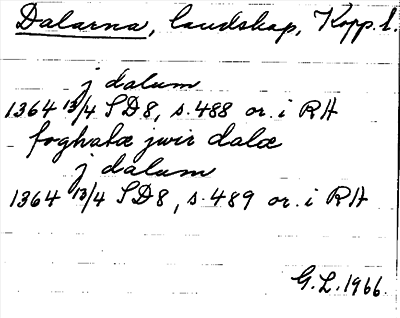 Dalarna, landskap, Kopp. l.
j dalum
1364 13/4 SD8, s. 488 or. i RA
foghatæ jwir dalæ
j dalum
1364 13/4 SD8, s. 489 or. i RA
G. L. 1966.